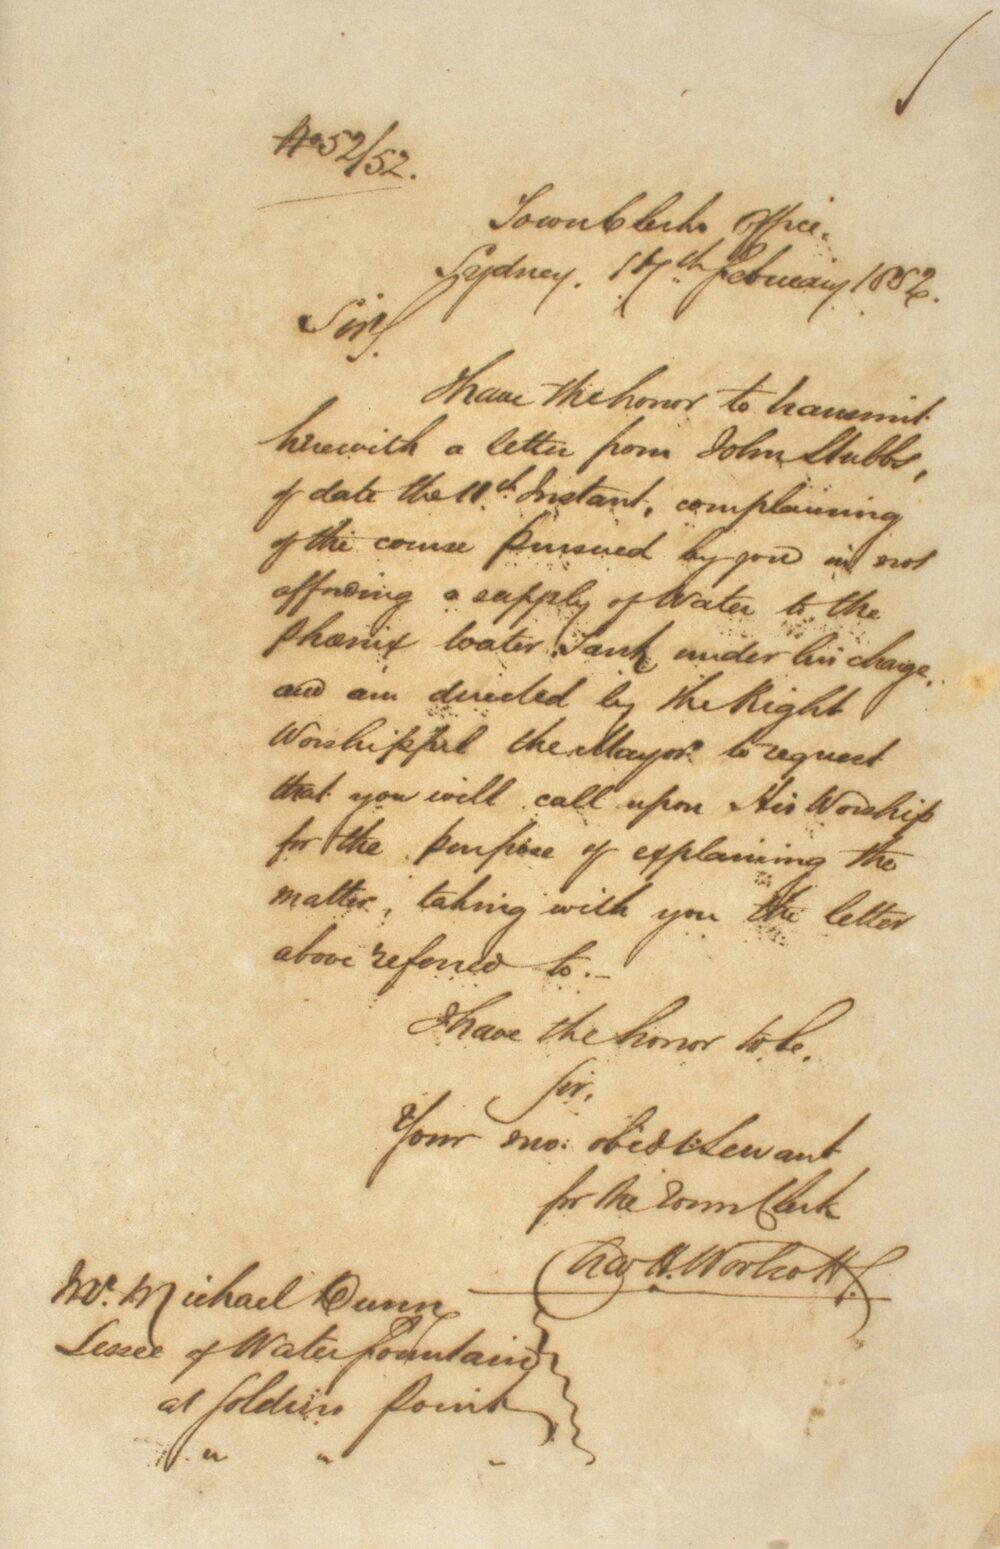 No 52/52.
Town Clerks Office.
Sydney. 17th February 1852.
Sir,
I have the honor to transmit
herewith a letter from John Stubbs,
of date the 11th Instant, complaining
of the course pursued by you in not
affording a supply of Water to the
Phœnix Water Tank under his charge,
and am directed by the Right
Worshipful the Mayor to request
that you will call upon His Worship
for the purpose of explaining the
matter, taking with you the letter
above referred to.-
I have the honor to be,
Sir,
Your mo: obedt Servant
for the Town Clerk
Chas H. Woolcott
Mr. Michael Dunn
Lessee of Water fountain
at Soldiers Point
" " "